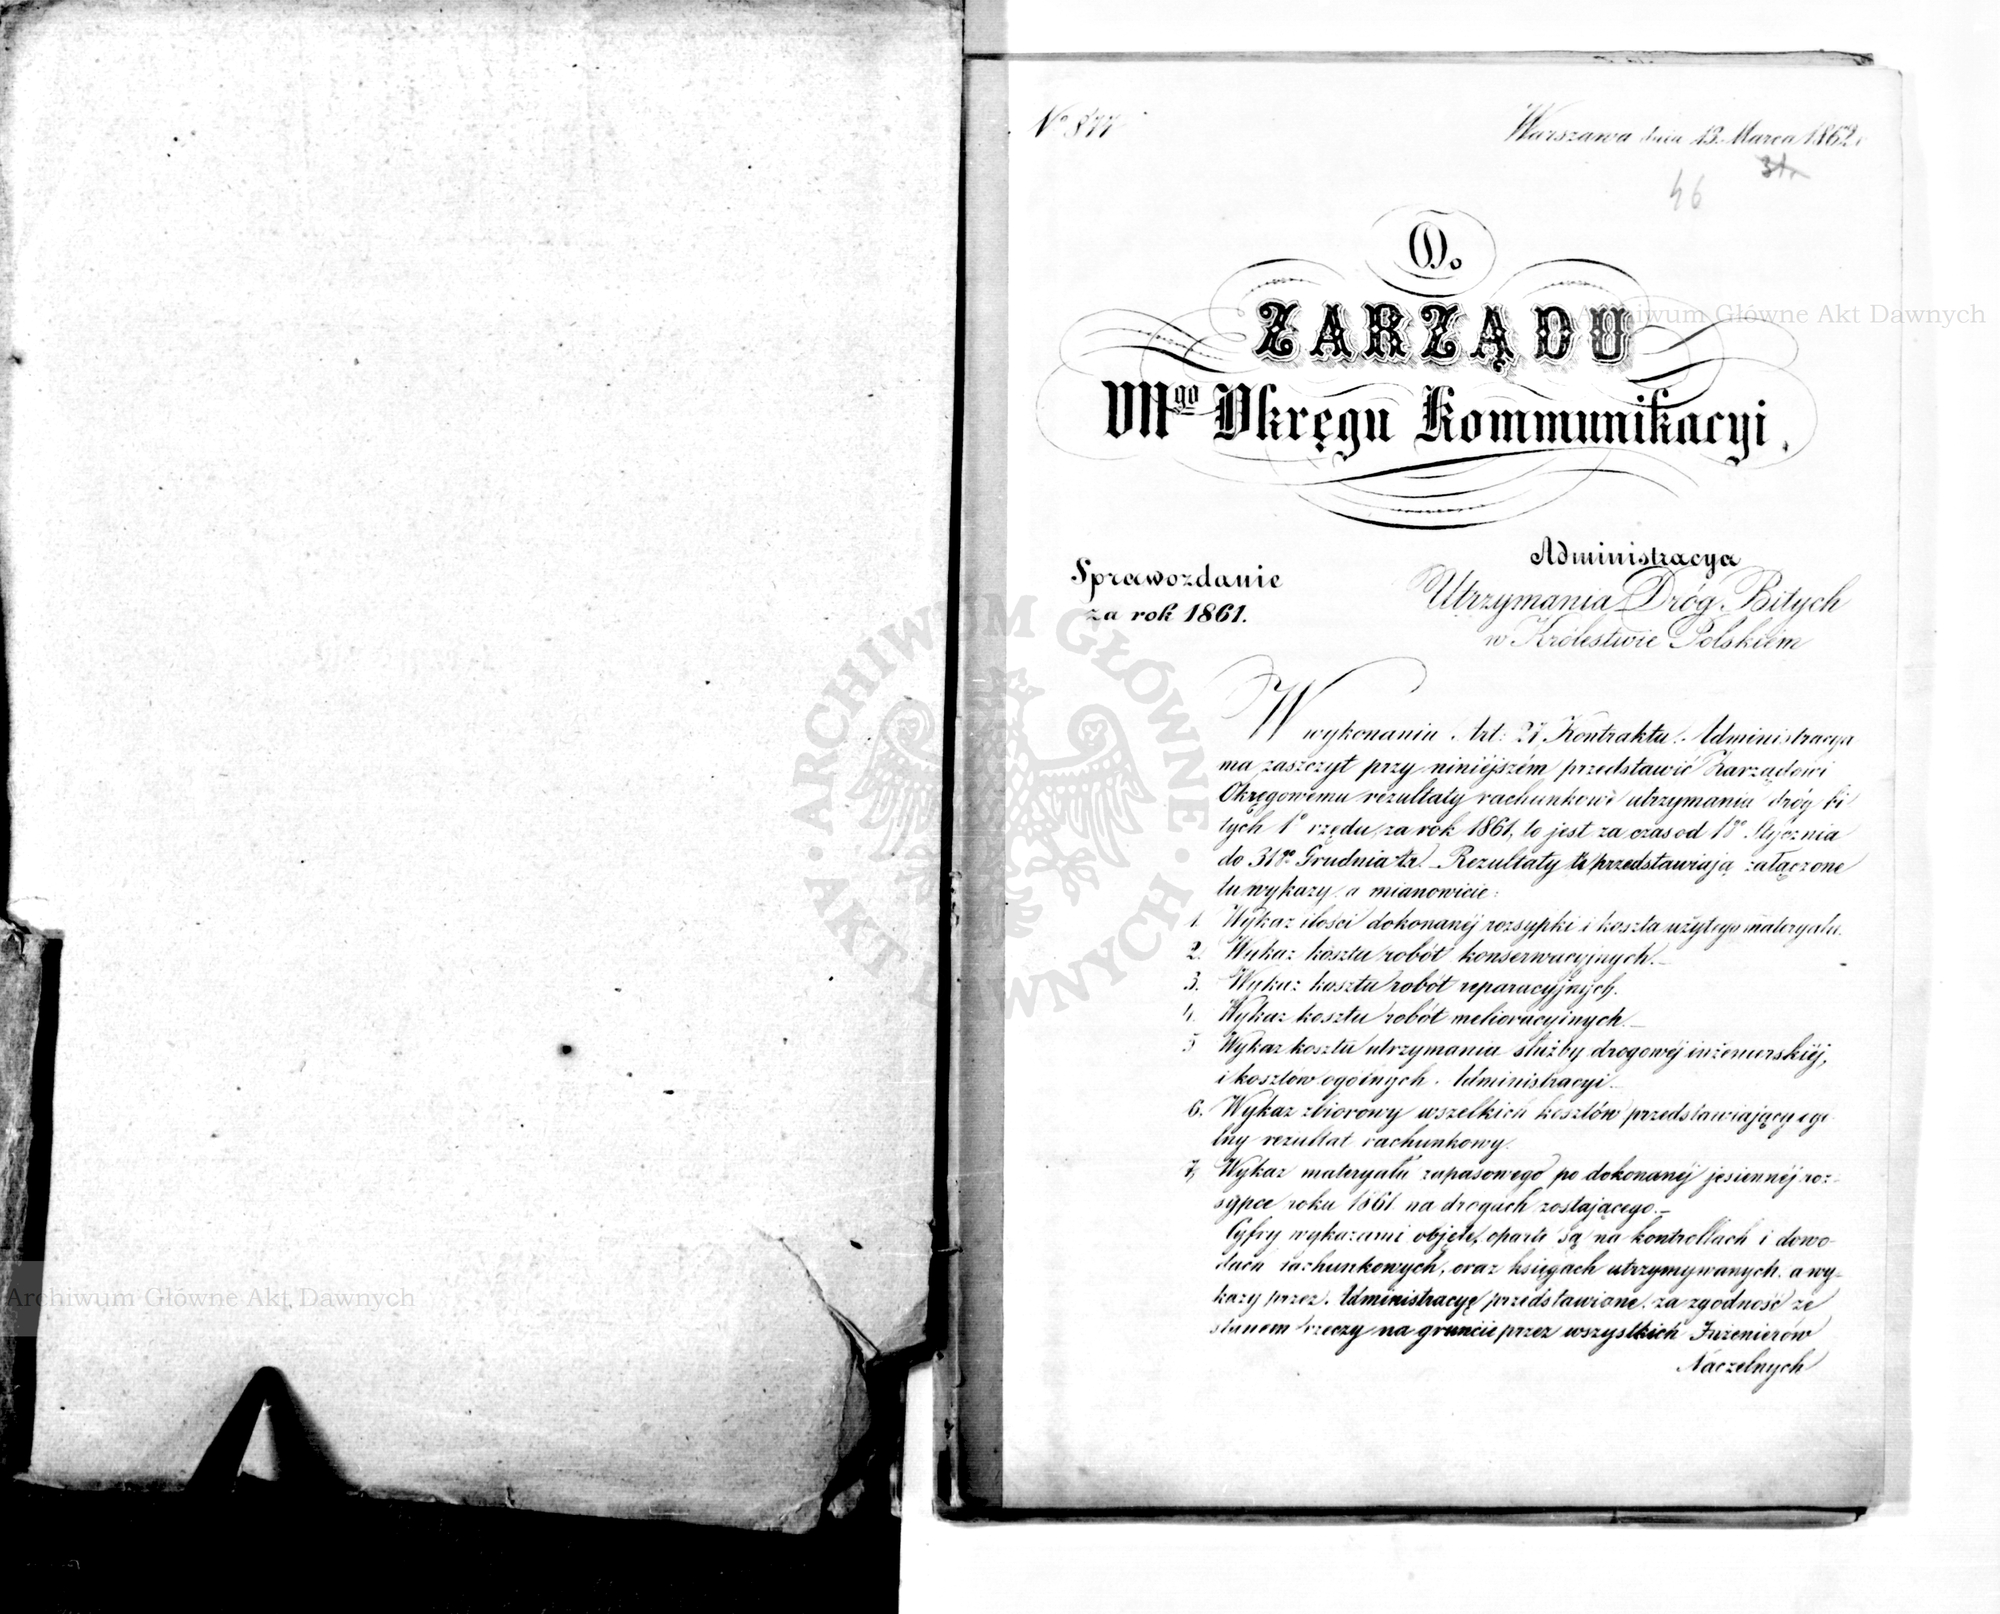 Nº 877
Warszawa dnia 13. Marca 1862 r
31.
46
Do
ZARZĄDU
VIIgo Okręgu Kommunikacyi.
Sprawozdanie
za rok 1861.
Administracya
Utrzymania Dróg Bitych
w Królestwie Polskiém
W wykonaniu Art: 27 Kontraktu Administracya
ma zaszczyt przy niniéjszém przedstawić Zarządowi
Okręgowemu rezultaty rachunkowe utrzymania dróg bi
tych 1º rzędu za rok 1861, to jest za czas od 1go Stycznia
do 31go Grudnia t.r. Rezultaty te przedstawiają załączone
tu wykazy a mianowicie:
1. Wykaz ilości dokonanéj rozsypki i koszta użytego materyału.
2. Wykaz kosztu robót konserwacyjnych.
3. Wykaz kosztu robót reparacyjnych.
4. Wykaz kosztu robót melioracyjnych.
5 Wykaz kosztu utrzymania służby drogowéj inżenierskiéj,
i kosztów ogólnych Administracyi.
6. Wykaz zbiorowy wszelkich kosztów przedstawiający ogó-
lny rezultat rachunkowy.
7, Wykaz materyału zapasowego po dokonanéj jesiennéj roz-
sypce roku 1861 na drogach zostającego.
Cyfry wykazami objęte, oparte są na kontrollach i dowo-
dach rachunkowych, oraz księgach utrzymywanych, a wy-
kazy przez Administracyę przedstawione, za zgodność ze
stanem rzeczy na gruncie przez wszystkich Inżenierów
Naczelnych
Archiwum Główne Akt Dawnych
Archiwum Główne Akt Dawnych
ARCHIWUM GŁÓWNE AKT DAWNYCH